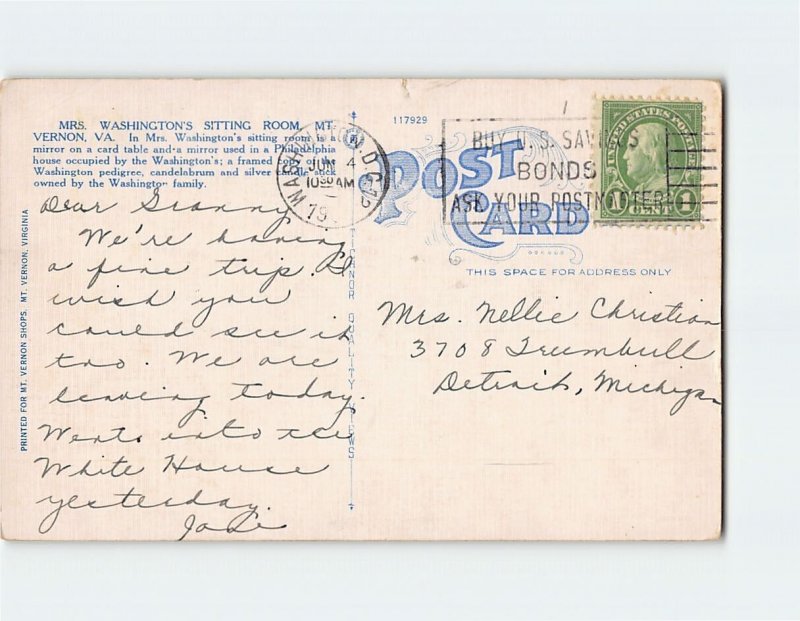 MRS. WASHINGTON'S SITTING ROOM, MT.
VERNON, VA. In Mrs. Washington's sitting room is a
mirror on a card table and a mirror used in a Philadelphia
house occupied by the Washington's; a framed copy of
Washington pedigree, candelabrum and silver candle stick
owned by the Washington family.
Dear Granny
We're having
a fine trip. I
wish you
could see it
too. We are
leaving today.
Went into the
White House
yesterday.
PRINTED FOR MT. VERNON SHOPS, MT. VERNON, VIRGINIA
TICHNOR QUALITY VIEWS
117929
POST
CARD
THIS SPACE FOR ADDRESS ONLY
WASHINGTON, D.C.
JUN 4
10 30 AM
19
BUY U.S. SAVINGS
BONDS
ASK YOUR POSTMASTER
UNITED STATES POSTAGE
1 CENT 1
Mrs. Nellie Christian
3708 Trumbull
Detroit, Michigan